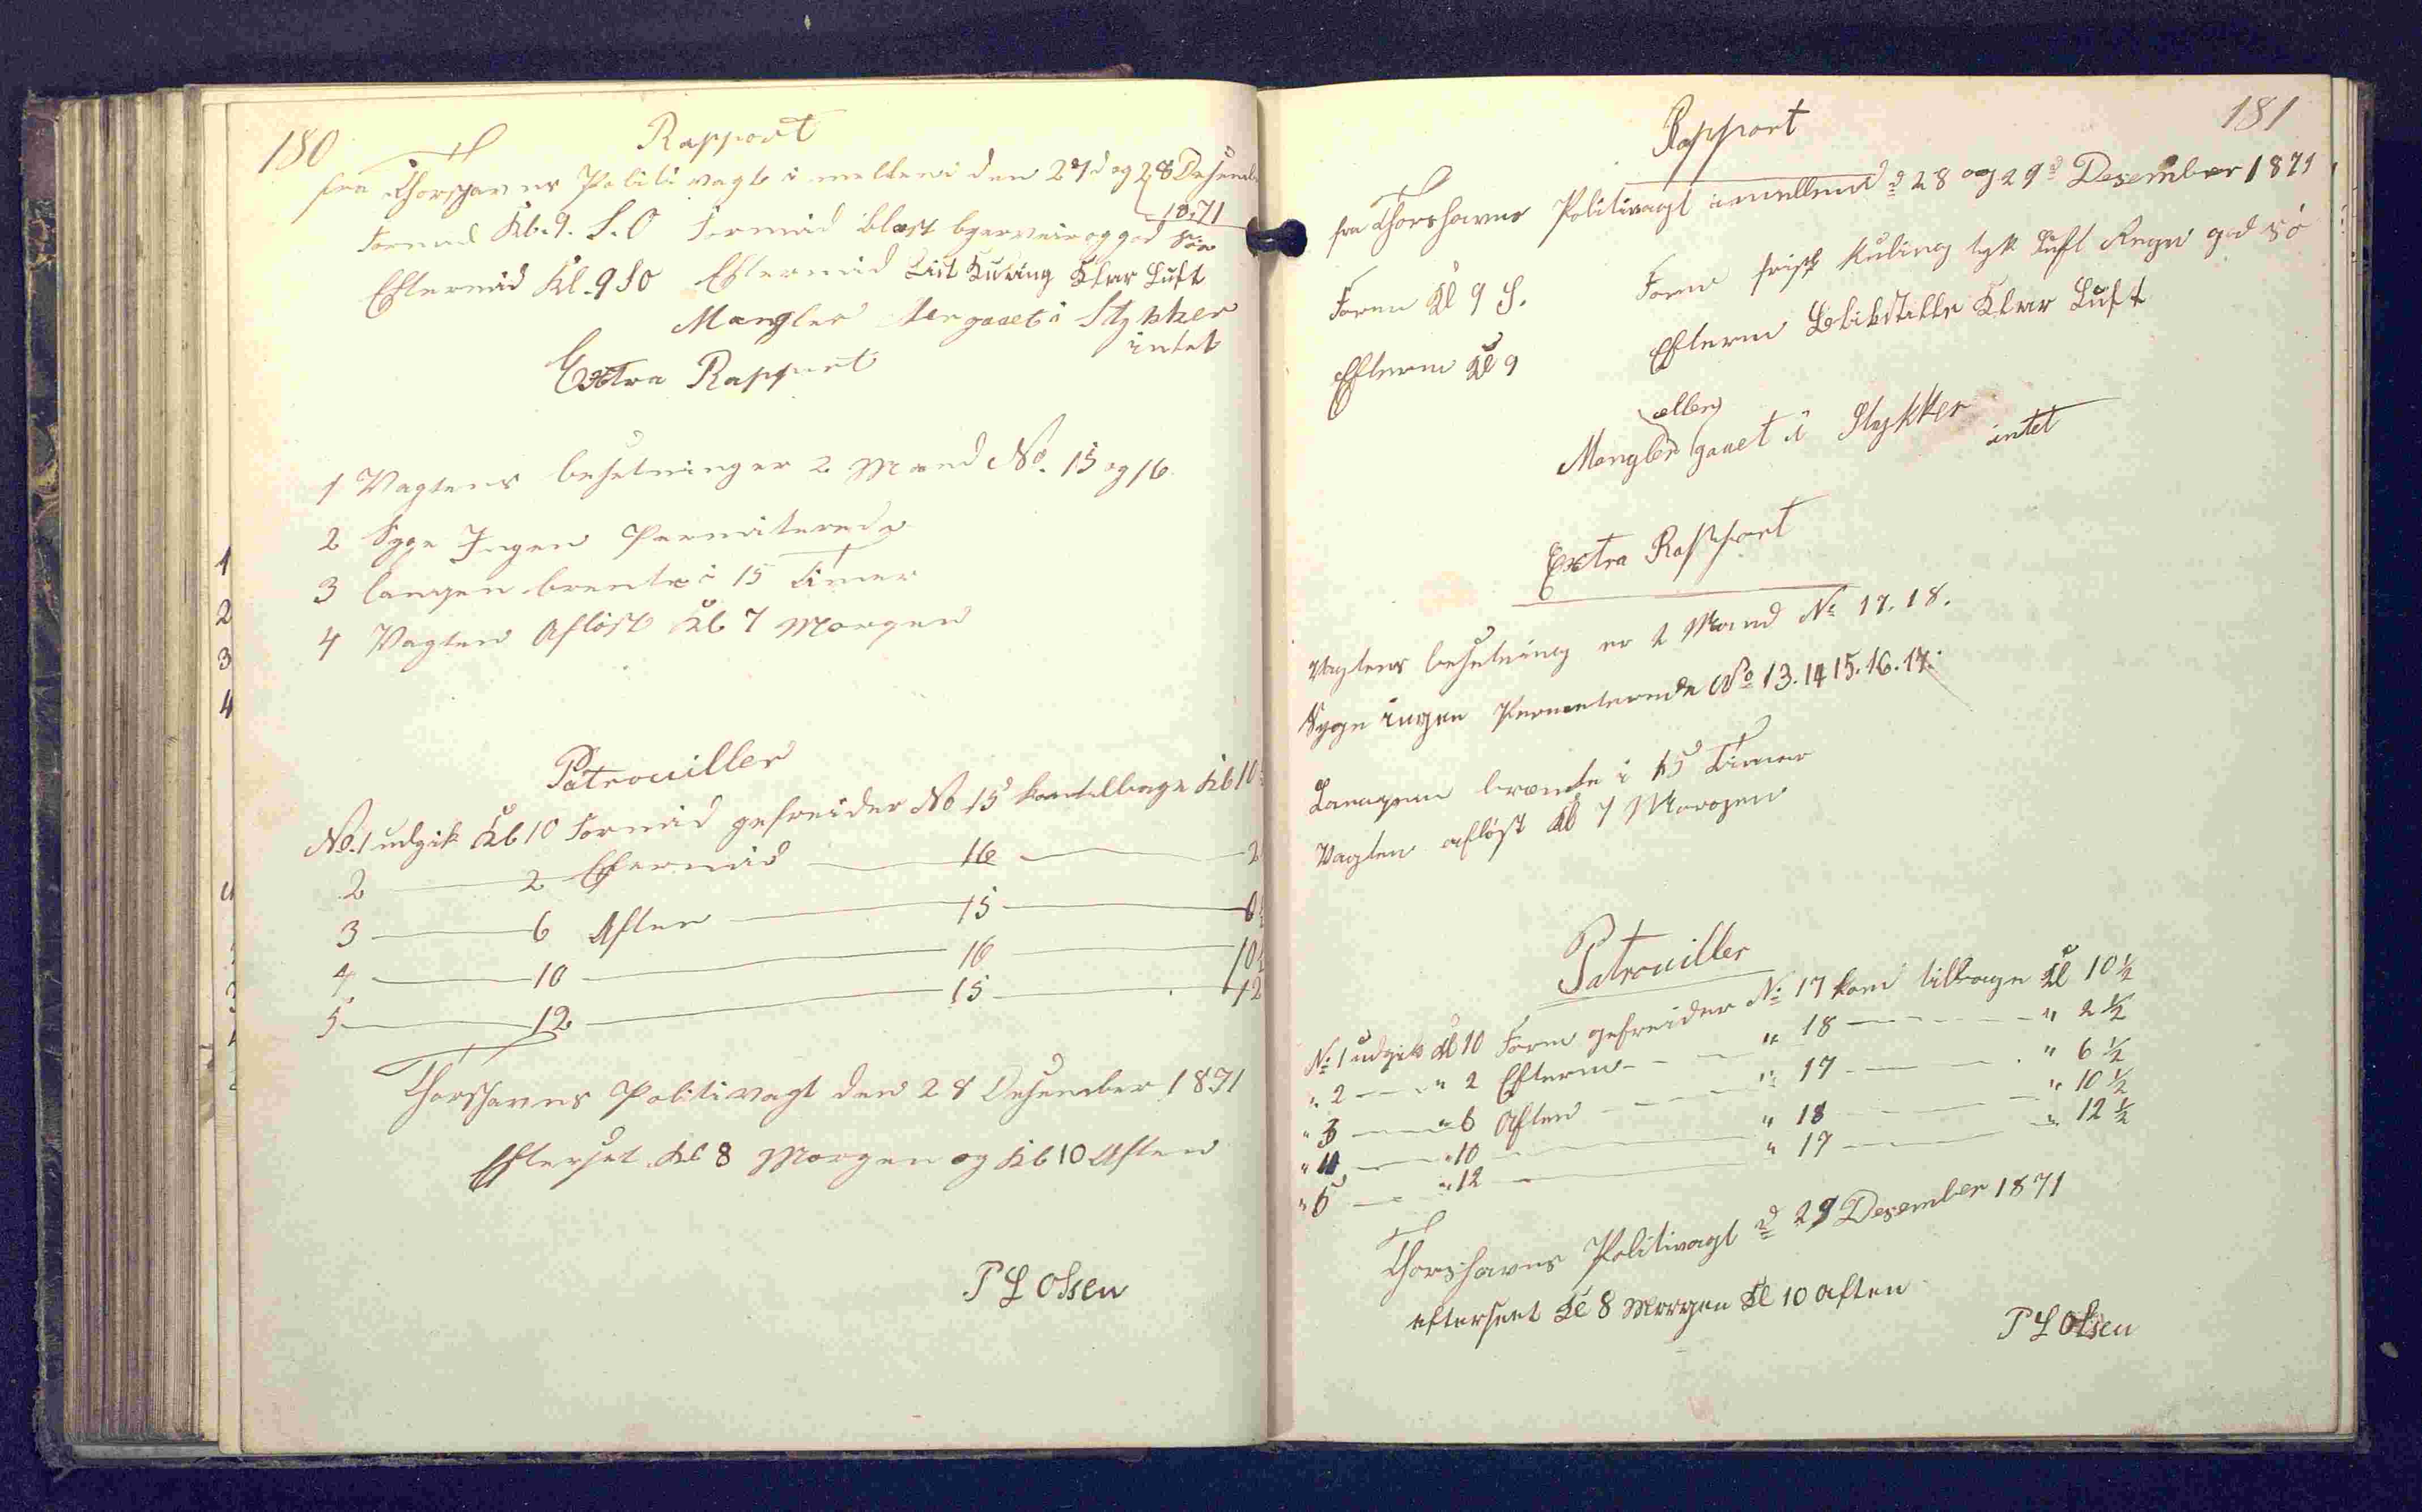 180
Rapport
fra Thorshavns Politivagt i mellem den 27d og 28 Desember
1871
Formid Kl. 9. S.O Formid blæst bgerveir og god Søe
Eftermid Kl. 9 SO Eftermid List Kuling Klar Luft
Mangler gaaet i Stykker
intet
Extra Rapport
1 Vagtens besetning er 2 Mand No. 15 og 16
2 Syge Ingen Permiterede
3 lampen brente i 15 Timer
4 Vagten Afløst Kl 7 Morgen
Patrouiller
No. 1 udgik Kl 10 Formid gefreider No 15 kom tilbage Kl 10
2 2 Eftermid 16 2
3 6 Aften 15 6
4 10 16 10
5 12 15 12
Thorshavns Politivagt den 28 Desember 1871
Efterset Kl 8 Morgen og Kl 10 Aften
P L Olsen
181
Rapport
fra Thorshavns Politivagt imellem d 28 og 29d Desember 1871
Form Kl 9 S. Form frisk Kuling tyk Luft Regn god sö
Efterm Kl 9 Efterm Blikstille Klar Luft
eller
Mangler gaaet i Stykker
intet
Extra Rapport
Vagtens besetning er 2 Mand No 17. 18.
Syge ingen Permeterede No 13. 14 15. 16. 17.
Lampen brænte i 15 Timer
Vagten afløst Kl 7 Morgen
Patrouiller
No 1 udgik Kl 10 Form gefreider No 17 kom tilbage Kl 10 ½
" 2 " 2 Efterm " 18 " 2 ½
" 3 " 6 Aften " 17 " 6 ½
" 4 " 10 " 18 " 10 ½
" 5 " 12 " 17 " 12 ½
Thorshavns Politivagt d 29 Desember 1871
efterseet Kl 8 Morgen Kl 10 Aften
P L Olsen